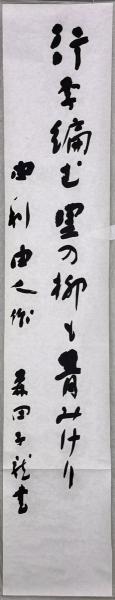 行李編む里の柳も青みけり
由利由人作 森田子龍書